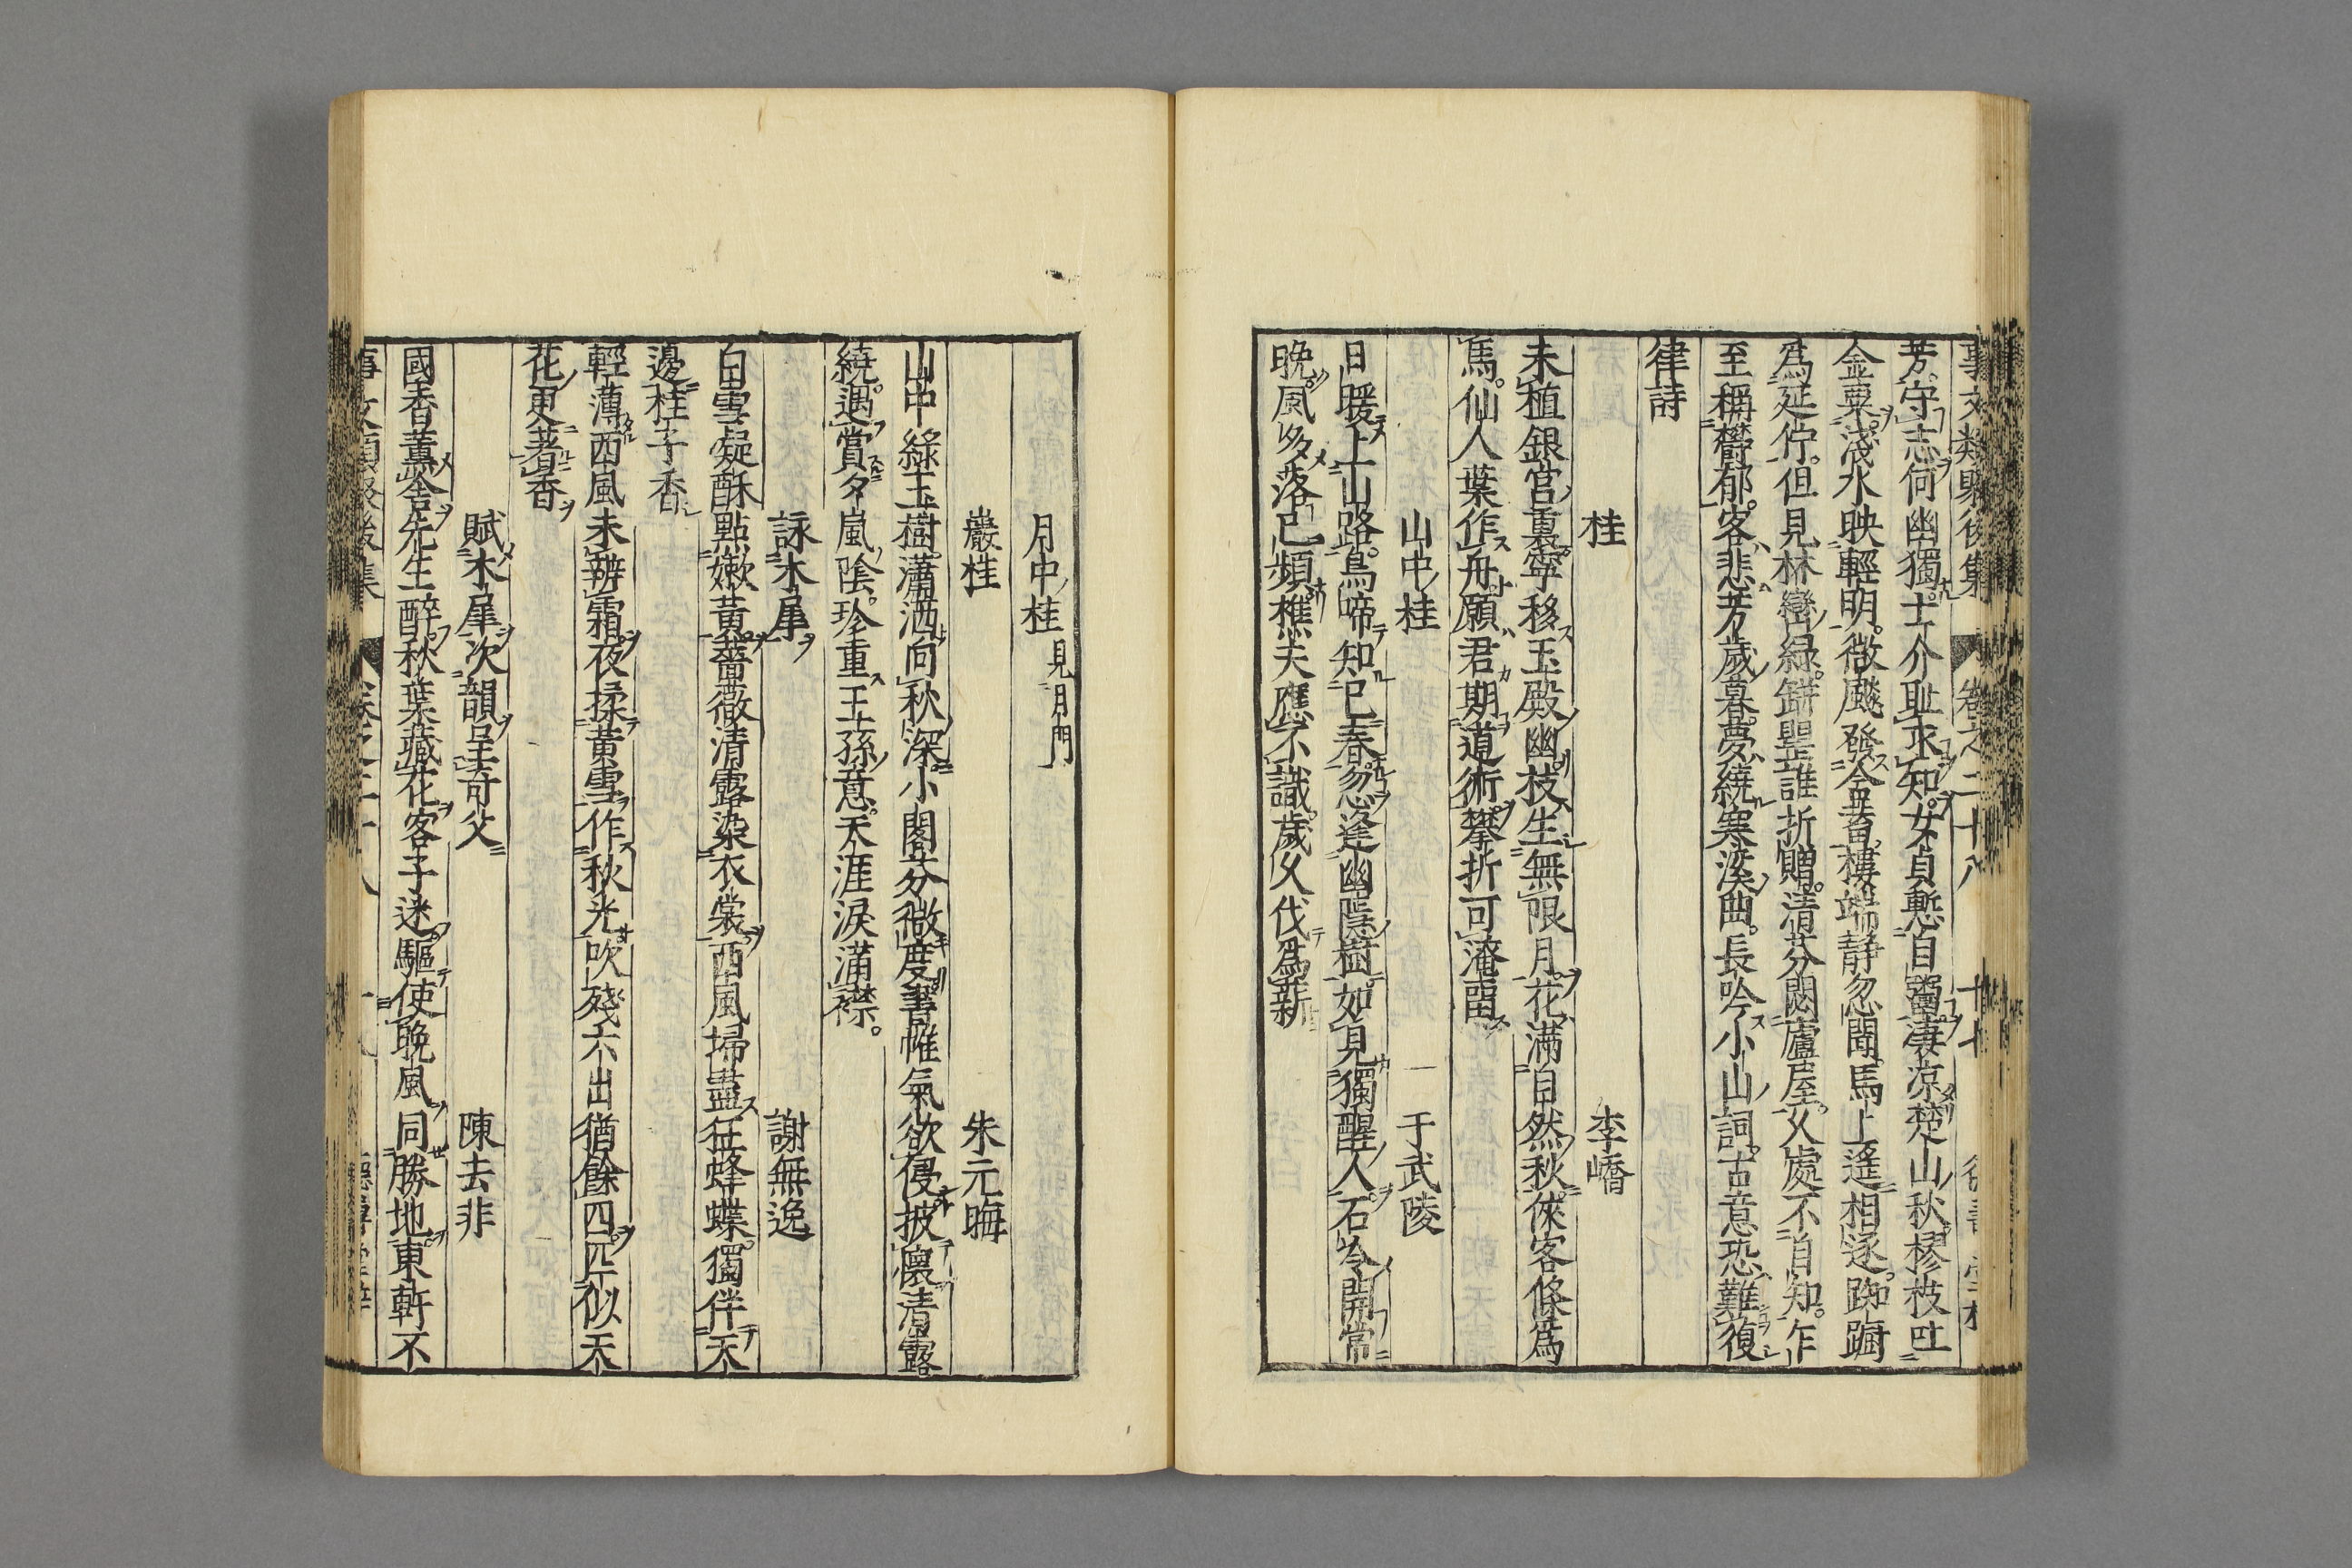 事文類聚後集 卷之二十八 十七
芳守志何幽獨士介耻求知女貞慙自鬻淒凉楚山秋樛枝吐
金粟淺水映輕明微颸發今畨樓端静忽聞馬上遙相逐踟蹰
爲延佇但見林巒緑缾罌誰折贈清芬閟廬屋久處不自知乍
至稱欝郁客悲芳歲暮夢繞寒溪曲長吟小山詞古意恐難復
律詩
桂 李嶠
未植銀宮裏寧移玉殿幽枝生無限月花滿自然秋俠客條爲
馬仙人葉作舟願君期道術攀折可淹畱
山中桂 于武陵
日暖上山路鳥啼知已春忽逢幽隱樹如見獨醒人石冷開常
晩風多落已頻樵夫應不識歲久伐爲薪
月中桂見月門
巖桂 朱元晦
山中綠玉樹瀟洒向秋深小閣芬微度書帷氣欲侵披懷清露
繞遇賞夕嵐陰珍重王孫意天涯淚滿襟
詠木犀 謝無逸
白雪凝酥點嫩黃薔薇清露染衣裳西風掃盡狂蜂蝶獨伴天
邊桂子香
輕薄西風未辨霜夜揉黃雪作秋光吹殘六出猶餘四匹似天
花更著香
賦木犀次韻呈奇父 陳去非
國香薰金先生醉秋葉藏花客子迷驅使晚風同勝地東軒不